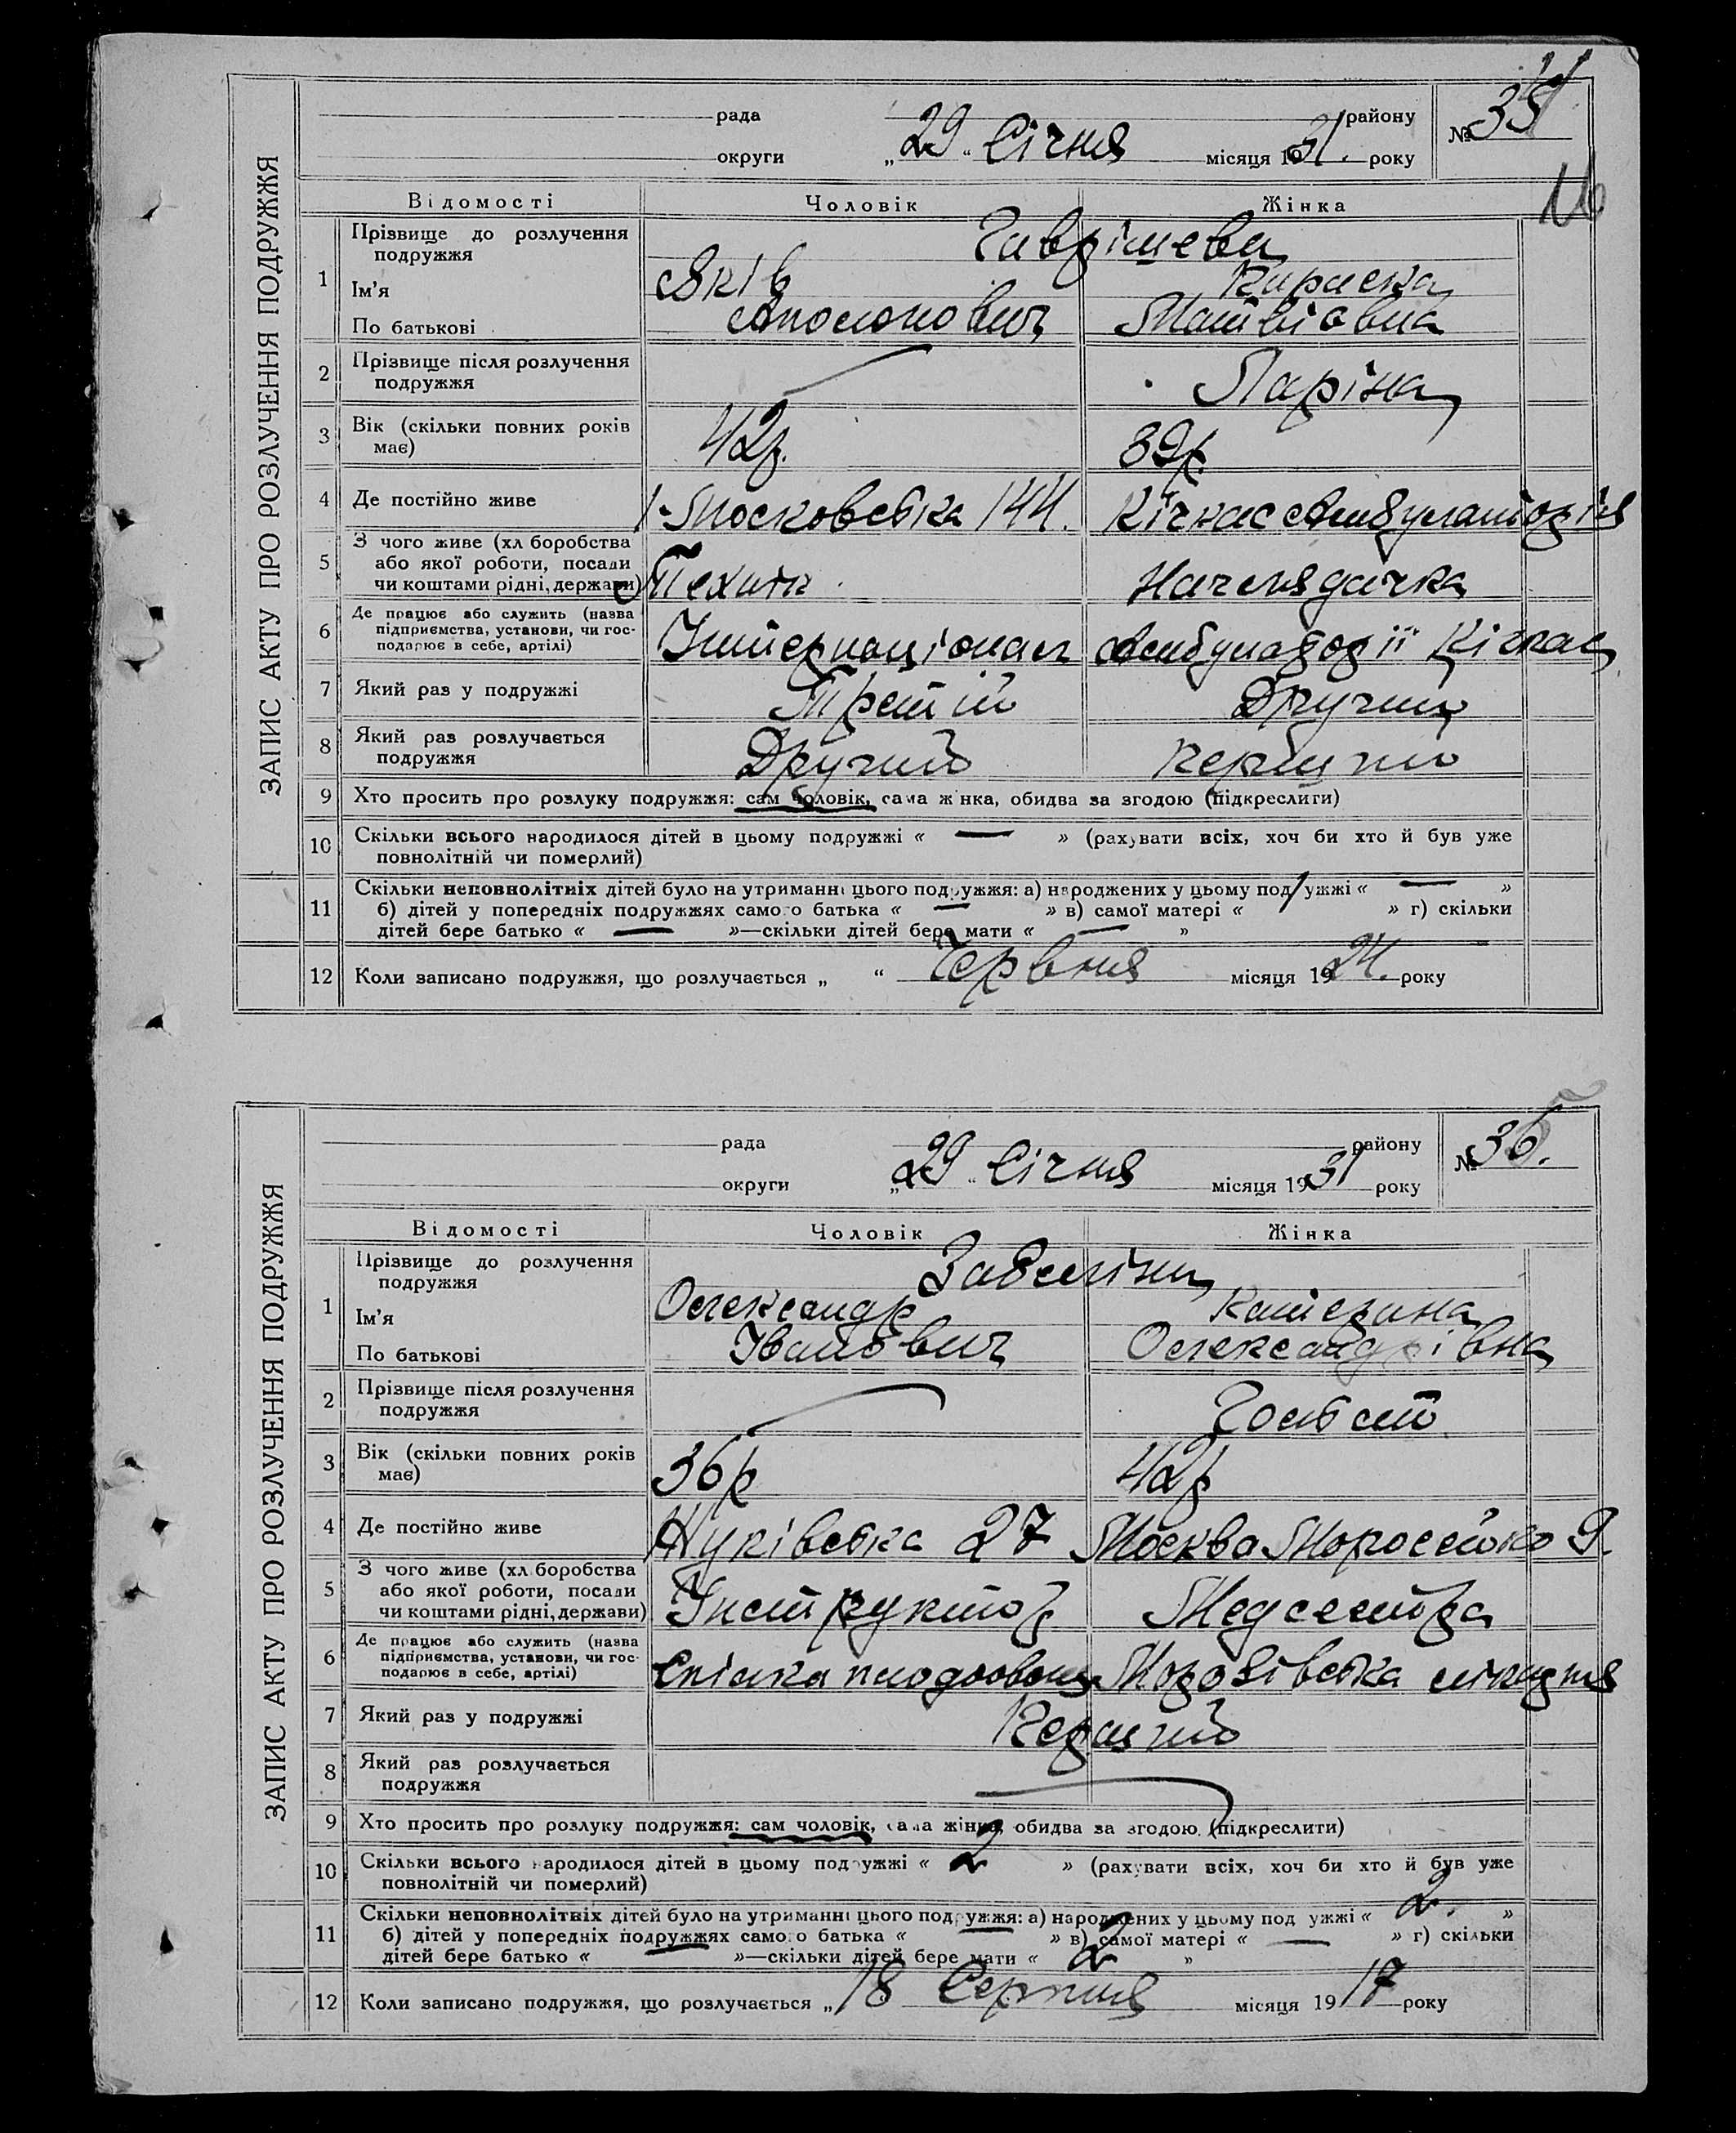 ЗАПИС АКТУ ПРО РОЗЛУЧЕННЯ ПОДРУЖЖЯ
рада району
округи „29“ Січня місяця 1931. року
№ 35
Відомості Чоловік Жінка
1 Прізвище до розлучення подружжя Гаврішеви
Ім'я Яків Кираска
По батькові Аполонович Матвіовна
2 Прізвище після розлучення подружжя Ларіна
3 Вік (скільки повних років має) 42р. 39р.
4 Де постійно живе 1-Московська 144. Кічкас Амбулаторія
5 З чого живе (хліборобства або якої роботи, посади чи коштами рідні, держави) Технік Нагенядачка
6 Де працює або служить (назва підприємства, установи, чи господарює в себе, артілі) Інтернаціонал Амбулаторії Кічкас
7 Який раз у подружжі Третій Другий
8 Який раз розлучається подружжя Другий Перший
9 Хто просить про розлуку подружжя: сам чоловік, сама жінка, обидва за згодою (підкреслити)
10 Скільки всього народилося дітей в цьому подружжі « — » (рахувати всіх, хоч би хто й був уже
повнолітній чи померлий)
11 Скільки неповнолітніх дітей було на утриманні цього подружжя: а) народжених у цьому подружжі « — »
б) дітей у попередніх подружжях самого батька « — » в) самої матері « » г) скільки
дітей бере батько « — »—скільки дітей бере мати « — »
12 Коли записано подружжя, що розлучається „ “ Червня місяця 1924. року
ЗАПИС АКТУ ПРО РОЗЛУЧЕННЯ ПОДРУЖЖЯ
рада району
округи „29“ Січня місяця 1931 року
№ 36.
Відомості Чоловік Жінка
1 Прізвище до розлучення подружжя
Ім'я Олександр Катерина
По батькові Іванович Олександрівна
2 Прізвище після розлучення подружжя
3 Вік (скільки повних років має) 36р 42р
4 Де постійно живе Жуківська 27 Москва Моросейко 9.
5 З чого живе (хліборобства або якої роботи, посади чи коштами рідні, держави) Інструктор Медсестра
6 Де працює або служить (назва підприємства, установи, чи господарює в себе, артілі) Спілка плодоовощ Морозівська лікарня
7 Який раз у подружжі Перший
8 Який раз розлучається подружжя
9 Хто просить про розлуку подружжя: сам чоловік, сама жінка, обидва за згодою (підкреслити)
10 Скільки всього народилося дітей в цьому подружжі « 2 » (рахувати всіх, хоч би хто й був уже
повнолітній чи померлий)
11 Скільки неповнолітніх дітей було на утриманні цього подружжя: а) народжених у цьому подружжі « 2. »
б) дітей у попередніх подружжях самого батька « — » в) самої матері « — » г) скільки
дітей бере батько « — »—скільки дітей бере мати « 2 »
12 Коли записано подружжя, що розлучається „18 Серпня місяця 1917 року